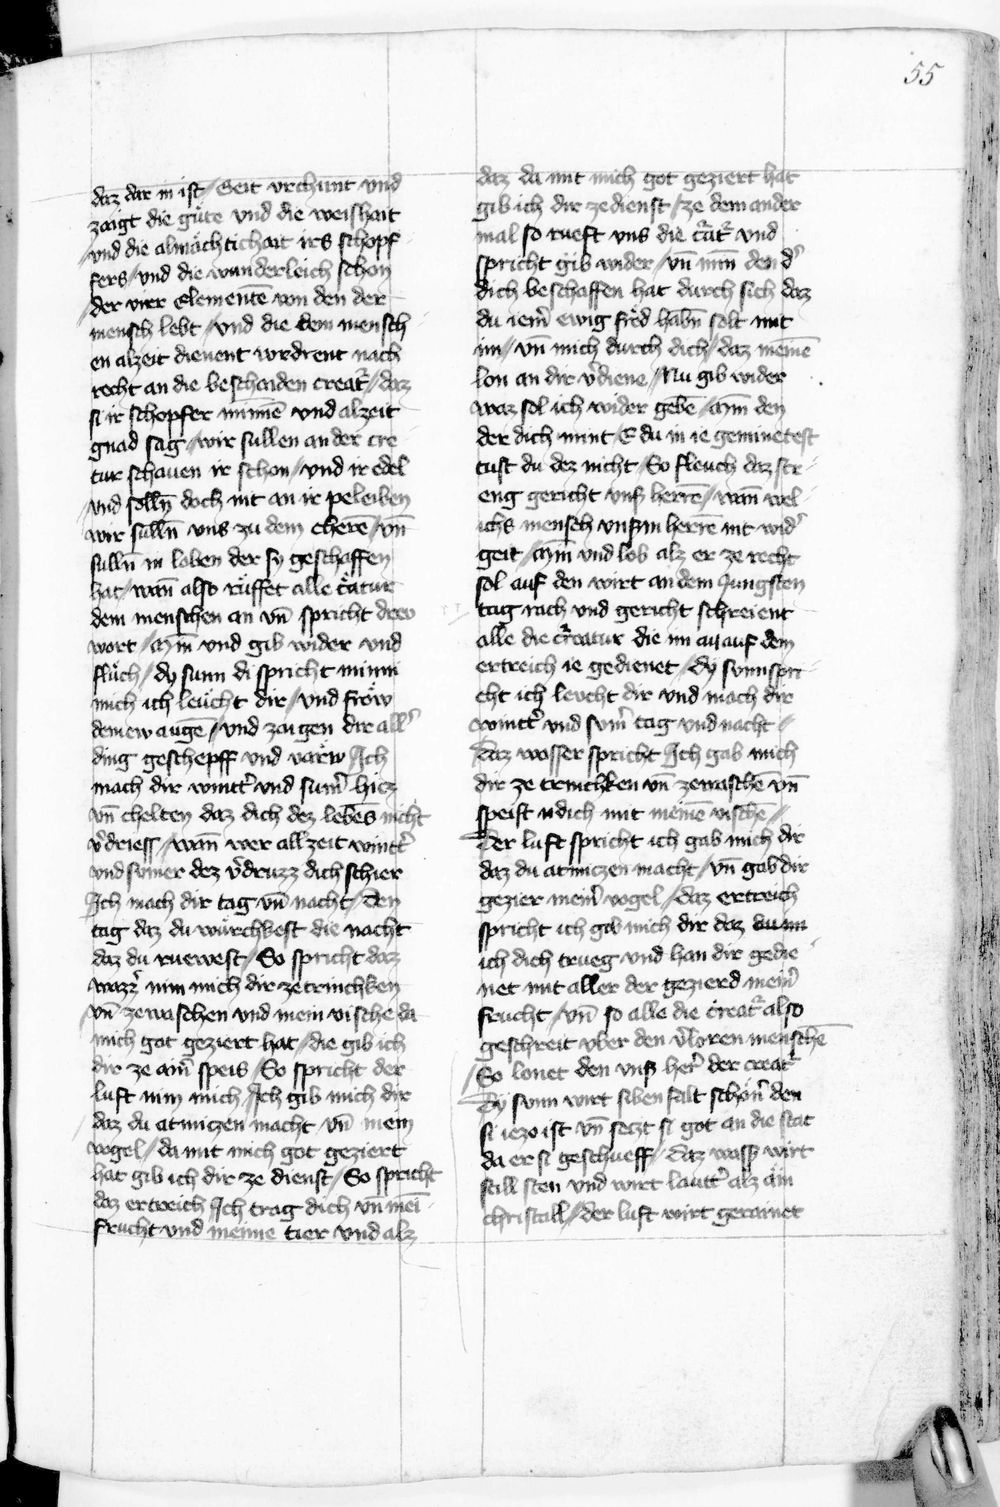 55
daz dar in ist / Seit vrchunt vnd
zaigt die güte vnd die weishait
vnd die almächtichait irs schopf
fers / vnd die wunderleich schon
der vier Elementē von den der
mensch lebt / vnd die dem mensch
en alzeit dienent wrdrent nach
recht an die beschaiden creat̉ / daz
si ir schopfer minnē vnd alzeit
gnad sag / wir sullen an der cre
tur schauen ir schon / vnd ir edel
vnd sölln̄ doch nit an ir peleiben
wir sülln̄ vns zu dem chere / vn̄
sulln̄ in loben der sy geschaffen
hat / wan̄ also rüffet alle c̉atur
dem menschen an vn̄ spricht drew
wort / Nim̄ vnd gib wider vnd
flüch / dy sunn di spricht nimm
mich ich leücht dir / vnd fröw
deinew augē / vnd zaigen dir all̉
ding geschepff vnd varäw Ich
mach dir wint̉t vnd sum̉ hicz
vn̄ chelten daz dich dez lebēs nicht
v̉driess / wan̄ wer allzeit wint̉t
vnd sumer dez v̉druzz dich schier
Ich mach dir tag vn̄ nacht / Den
tag daz du würchkest die nacht
daz du ruewest / So spricht daz
wazz̉ nim mich dir ze trinchken
vn̄ ze waschen vnd mein vische da
mich got geziert hat / die gib ich
dir ze ain̉ speis / So spricht der
luft nim mich / Ich gib mich dir
daz du atmiczen macht vn̄ mein
vogel / da mit mich got geziert
hat gib ich dir ze dienst / So spricht
daz ertreich Ich trag dich vn̄ mei
frucht vnd meine tier vnd alz
daz da mit mich got geziert hat
gib ich dir ze dienst / ze dem ander
mal so rueft vns die c̉at̉ vnd
spricht gib wider / vn̄ min̄ den d̉
dich beschaffen hat durch sich daz
du iem̉ ewig fröd habn̄ solt mit
im / vn̄ mich durch dich / daz meinē
lon an dir v̉diene / Nu gib wider
waz sol ich wider gebē / Min̄ den
der dich mint E du in ie geminetest
tust du dez nicht / So fleuch daz str
eng gericht vnſs herrē / wan̄ wel
ichs mensch vnſsm herrē nit wid̉
geit / Min̄ vnd lob alz er ze recht
sol auf den wirt an dem Jungsten
tag rach vnd gericht schreient
alle die c̉reatur die im au auf dem
ertreich ie gedienet / dy sunn spri
cht ich leucht dir vnd mach dir
wint̉t vnd sum̉ tag vnd nacht /
Daz wasser spricht Ich gab mich
dir ze trinchken vn̄ ze waschē vn̄
speist ndich mit meinē vischē /
Der luft spricht ich gab mich dir
daz du atmiczen macht / vn̄ gab dir
gezier mein̉ vogel / daz ertreich
spricht ich gab mich dir daz du in
ich dich trueg vnd han dir gedie
net mit aller der gezierd mein̉
frucht / vn̄ so alle die c̉reat̉ also
geschreit vber den v̉loren menschē
So lonet den vnſs her̉ der creat̉
Dy sunn wirt siben falt schön̉ den
si iezo ist vn̄ seczt si got an die stat
da er si geschueff / Daz waſs̉ wirt
still sten vnd wirt laut̉t alz ain
christall / der luft wirt gerainet